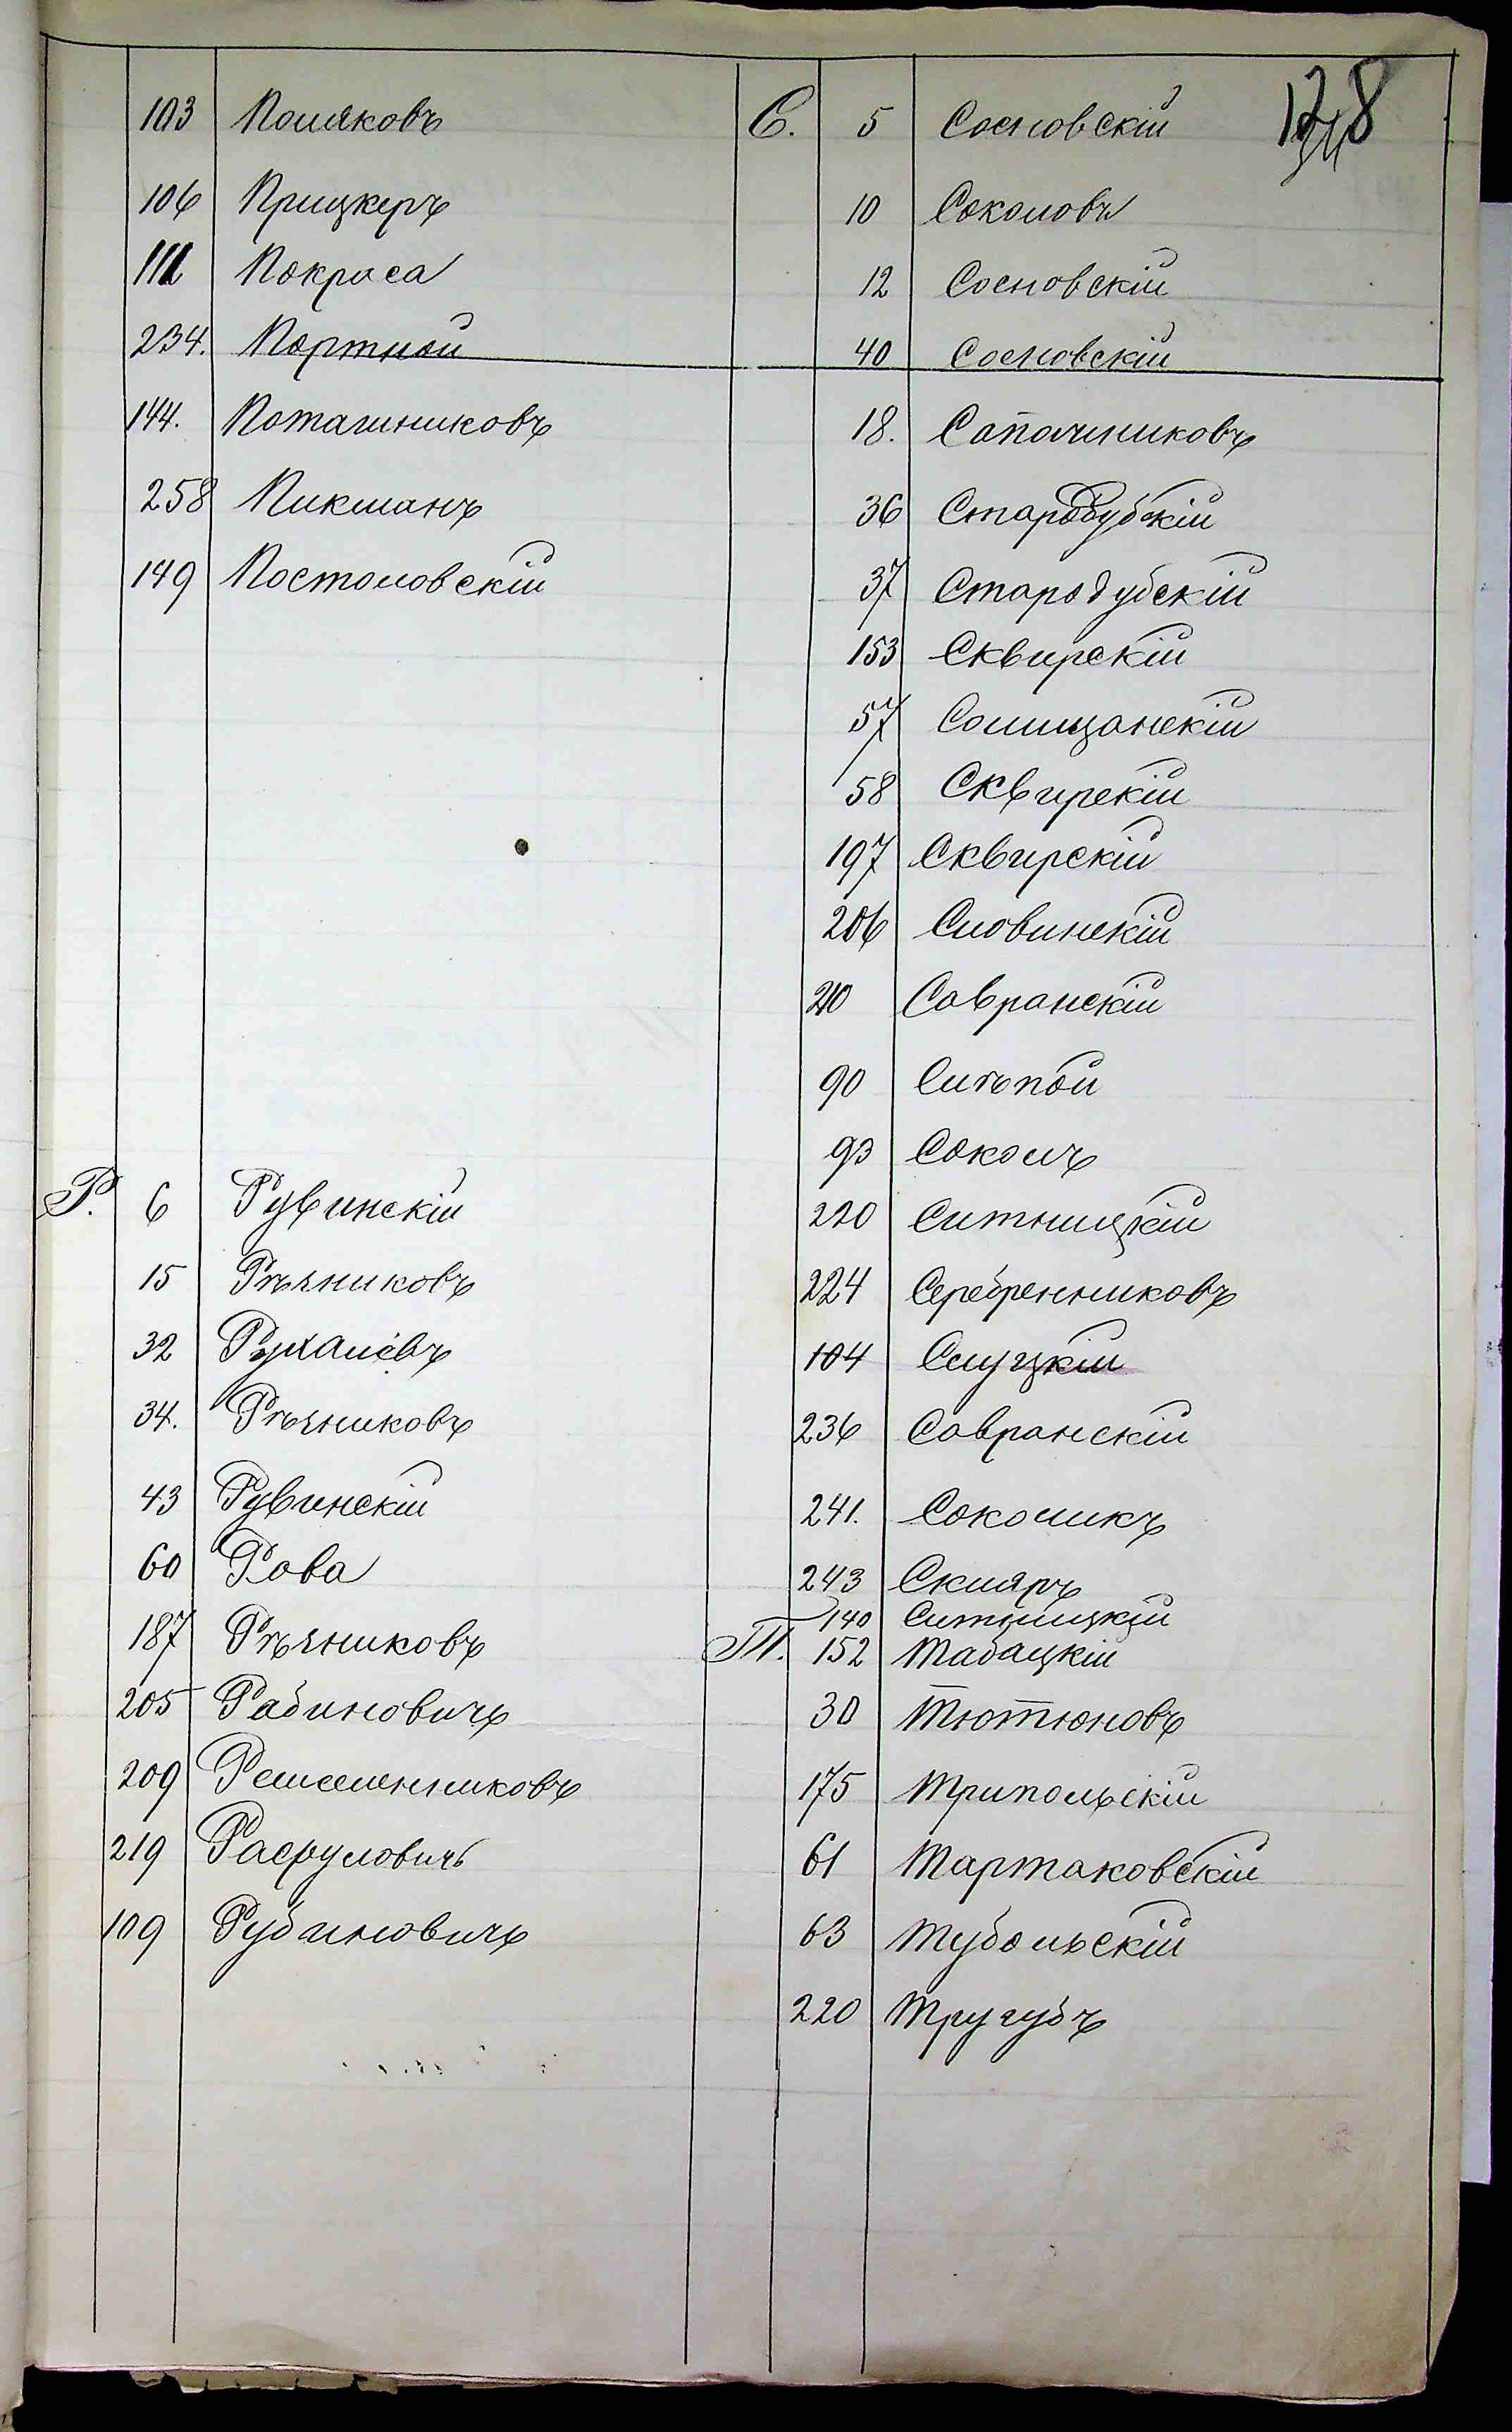 128
103 Поляковъ
106 Прицкеръ
112 Покраса
234. Портной
144. Поташниковъ
258 Пикманъ
149 Постоловскій
Р. 6 Рувинскій
15 Рѣзниковъ
32 Рухлiевъ
34. Рѣзниковъ
43 Рувинскій
60 Рова
187 Рѣзниковъ
205 Рабиновичъ
209 Ремесленниковъ
219 Расруловичъ
109 Рубановичъ
С. 5 Сосновскій
10 Соколовъ
12 Сосновскій
40 Сосновскій
18. Сапожниковъ
36 Стародубскій
37 Стародубскій
153 Сквирскій
57 Солищанскій
58 Сквирскій
197 Сквирскій
206 Словинскій
210 Савранскій
90 Слѣпой
93 Соколъ
220 Ситницкій
224 Серебренниковъ
104 Слуцкій
236 Савранскій
241. Соколикъ
243 Скляръ
140 Ситницкій
Т. 152 Табацкій
30 Тютюновъ
175 Трипольскій
61 Тартаковскій
63 Тубольскій
220 Тригубъ